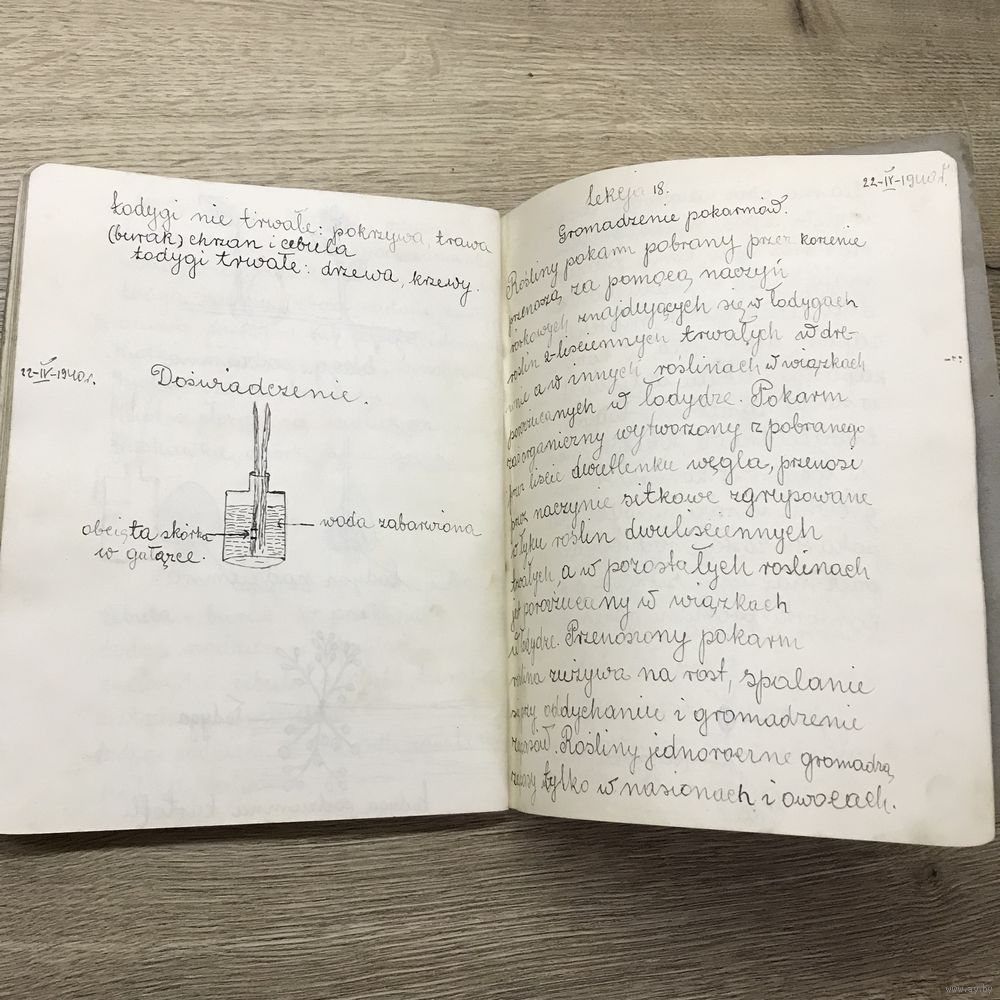 Łodygi nie trwałe: pokrzywa, trawa
(burak) chrzan i cebula
Łodygi trwałe: drzewa, krzewy.
22-IV-1940r.
Doświadczenie.
obcięta skórka
w gałązce.
woda zabarwiona
Lekcja 18.
22-IV-1940r.
Gromadzenie pokarmów.
Rośliny pokarm pobrany przez korzenie
przenoszą za pomocą naczyń
workowych znajdujących się w łodygach
roślin 2-liściennych trwałych w dre-
wnie a w innych roślinach w wiązkach
porozrzucanych w łodydze. Pokarm
zaś organiczny wytworzony z pobranego
przez liście dwutlenku węgla, przenosi
przez naczynie sitkowe zgrupowane
łyku roślin dwuliściennych
trwałych, a w pozostałych roślinach
jest porozrzucany w wiązkach
w łodydze. Przenoszony pokarm
roślina zużywa na rost, spalanie
się przy oddychaniu i gromadzenie
zapasów. Rośliny jednoroczne gromadzą
zapasy tylko w nasionach i owocach.
www.ay.by